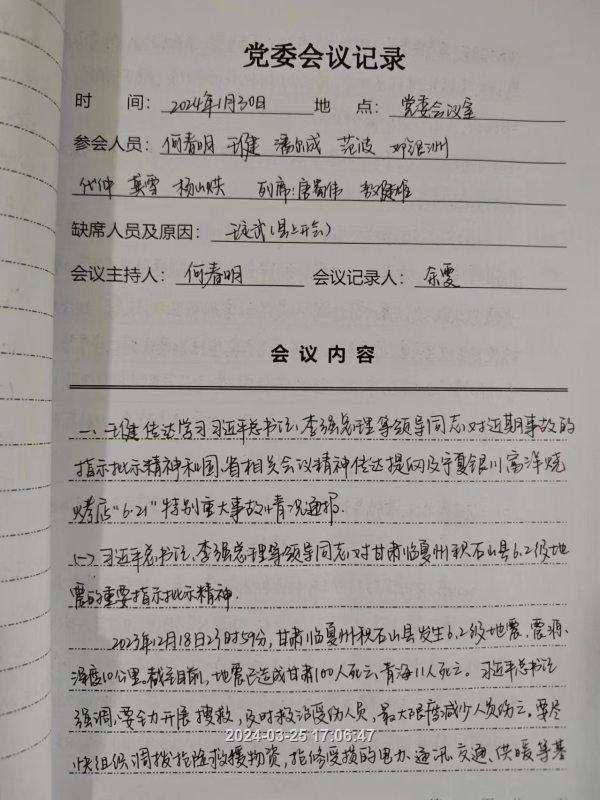 党委会议记录
时 间： 2024年1月30日 地 点： 党委会议室
参会人员： 何春明 王健 范波
代仲 杨 列席：
缺席人员及原因： （县上开会）
会议主持人： 何春明 会议记录人： 余雯
会议内容
一、王健传达学习习近平总书记、李强总理等领导同志对近期事故的
指示批示精神和国、省相关会议精神传达提纲及宁夏银川富洋烧
烤店“6·21”特别重大事故情况通报。
（一）习近平总书记、李强总理等领导同志对甘肃临夏州积石山县6.2级地
震的重要指示批示精神.
2023年12月18日23时59分，甘肃临夏州积石山县发生6.2级地震，震源
深度10公里。截至目前，地震已造成甘肃100人死亡、青海11人死亡。习近平总书记
强调，要全力开展搜救，及时救治受伤人员，最大限度减少人员伤亡。要尽
快组织调拨抢险救援物资，抢修受损的电力、通讯、交通、供暖等基
2024-03-25 17:06:47